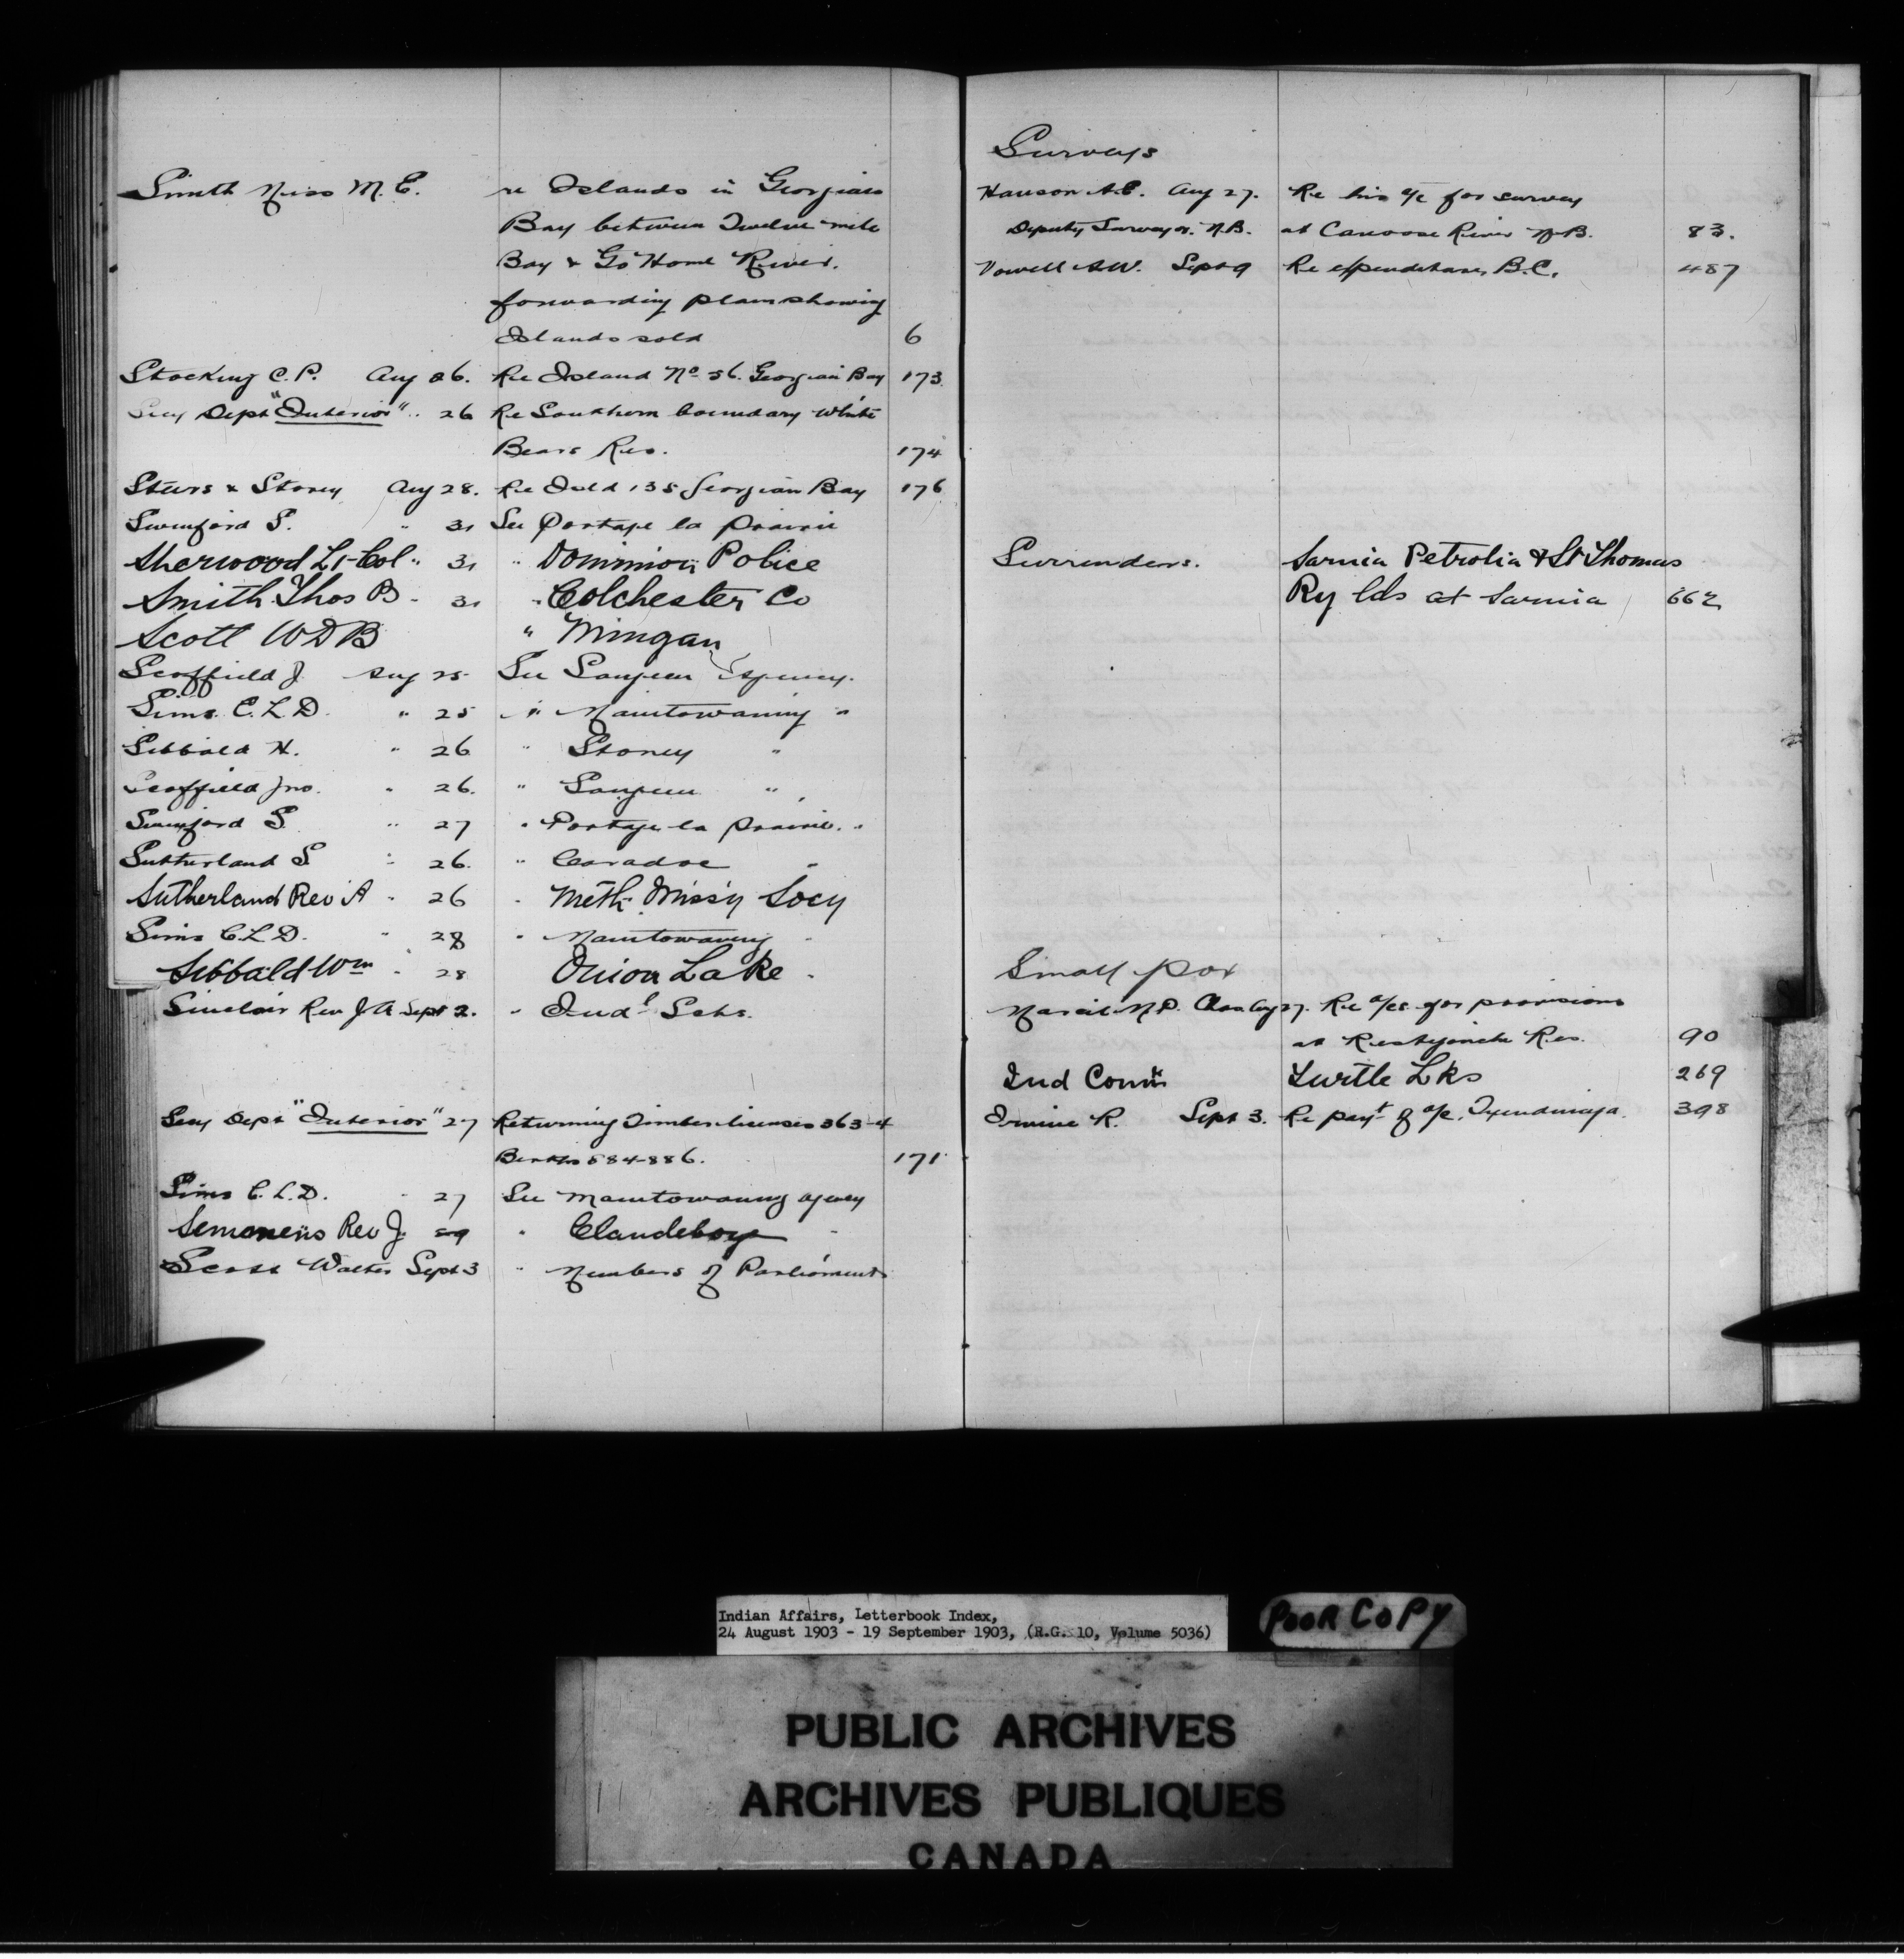 Smith Miss M. E. re Islands in Georgian
Bay between Twelve mile
Bay & Go Home River.
forwarding plan showing
Islands sold 6
Stocking C. P. Aug 26. Re Island No 56. Georgian Bay 173
Secy Dept "Interior" .. 26 Re Southern boundary White
Bears Res. 174
Steers & Storey Aug 28. Re Isld 135 Georgian Bay 176
Swinford S. " 31 See Portage la Prairie
Sherwood Lt-Col " 31 " Dominion Police
Smith Thos B " 31 " Colchester Co
Scott W D B " Mingan
Scoffield J. Aug 25 See Saugeen Agency.
Sims C. L. D. " 25 " Manitowaning "
Sibbald H. " 26 " Stoney "
Scoffield Jno. " 26. " Saugeen "
Swinford S. " 27 " Portage la Prairie. "
Sutherland S " 26. " Caradoc "
Sutherland Rev A " 26 " Meth. Miss'y Socy
Sims C. L. D. " 28 " Manitowaning "
Sibbald Wm " 28 Onion Lake "
Sinclair Rev J A Sept 2. " Indl Schs.
Secy Dept "Interior" 27 Returning Timber licenses 363-4
Berths 884-886. 171
Sims C. L. D. " 27 See Manitowaning agency
Semmens Rev J. 29 " Clandeboye "
Scott Walter Sept 3 " Members of Parliament
Surveys
Hanson A. E. Aug 27. Re his a/c for survey
Deputy Surveyor. N. B. at Canoose River N. B. 83.
Vowell A. W. Sept 9 Re expenditures B. C. 487
Surrenders. Sarnia Petrolia & St Thomas
Ry lds at Sarnia 662
Small pox
Marcil M. P. Chas Aug 27. Re a/cs for provisions
at Restigouche Res. 90
Ind Comr Turtle Lks 269
Irwine R. Sept 3. Re payt of a/c. Tyendinaga. 398
Indian Affairs, Letterbook Index,
24 August 1903 - 19 September 1903, (R.G. 10, Volume 5036)
POOR COPY
PUBLIC ARCHIVES
ARCHIVES PUBLIQUES
CANADA